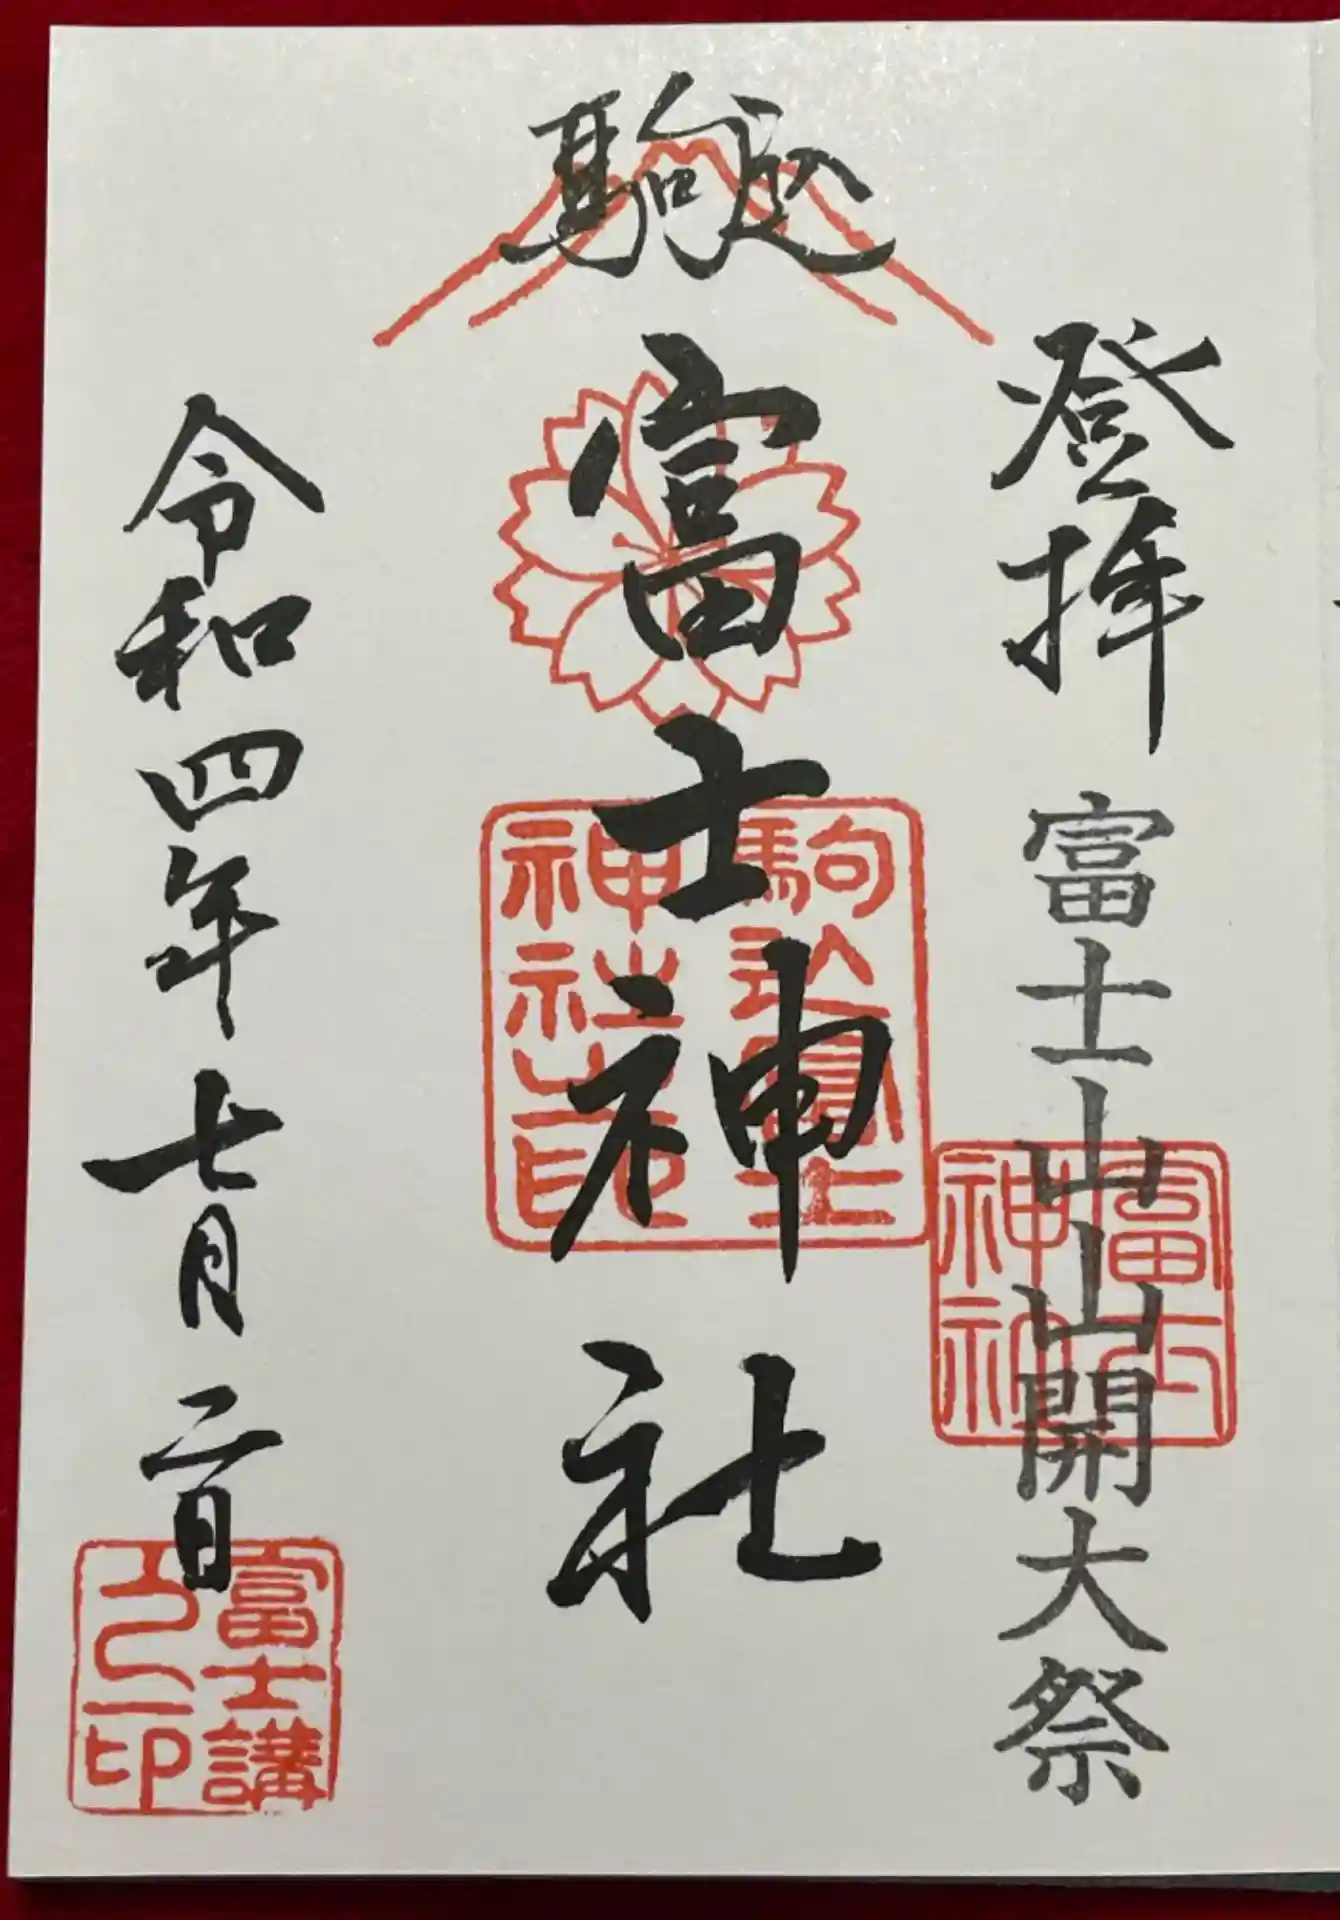 登拝
富士山山開大祭
富士
神社
駒込
富士神社
駒込富士
神社之印
令和四年七月二日
富士講
之印